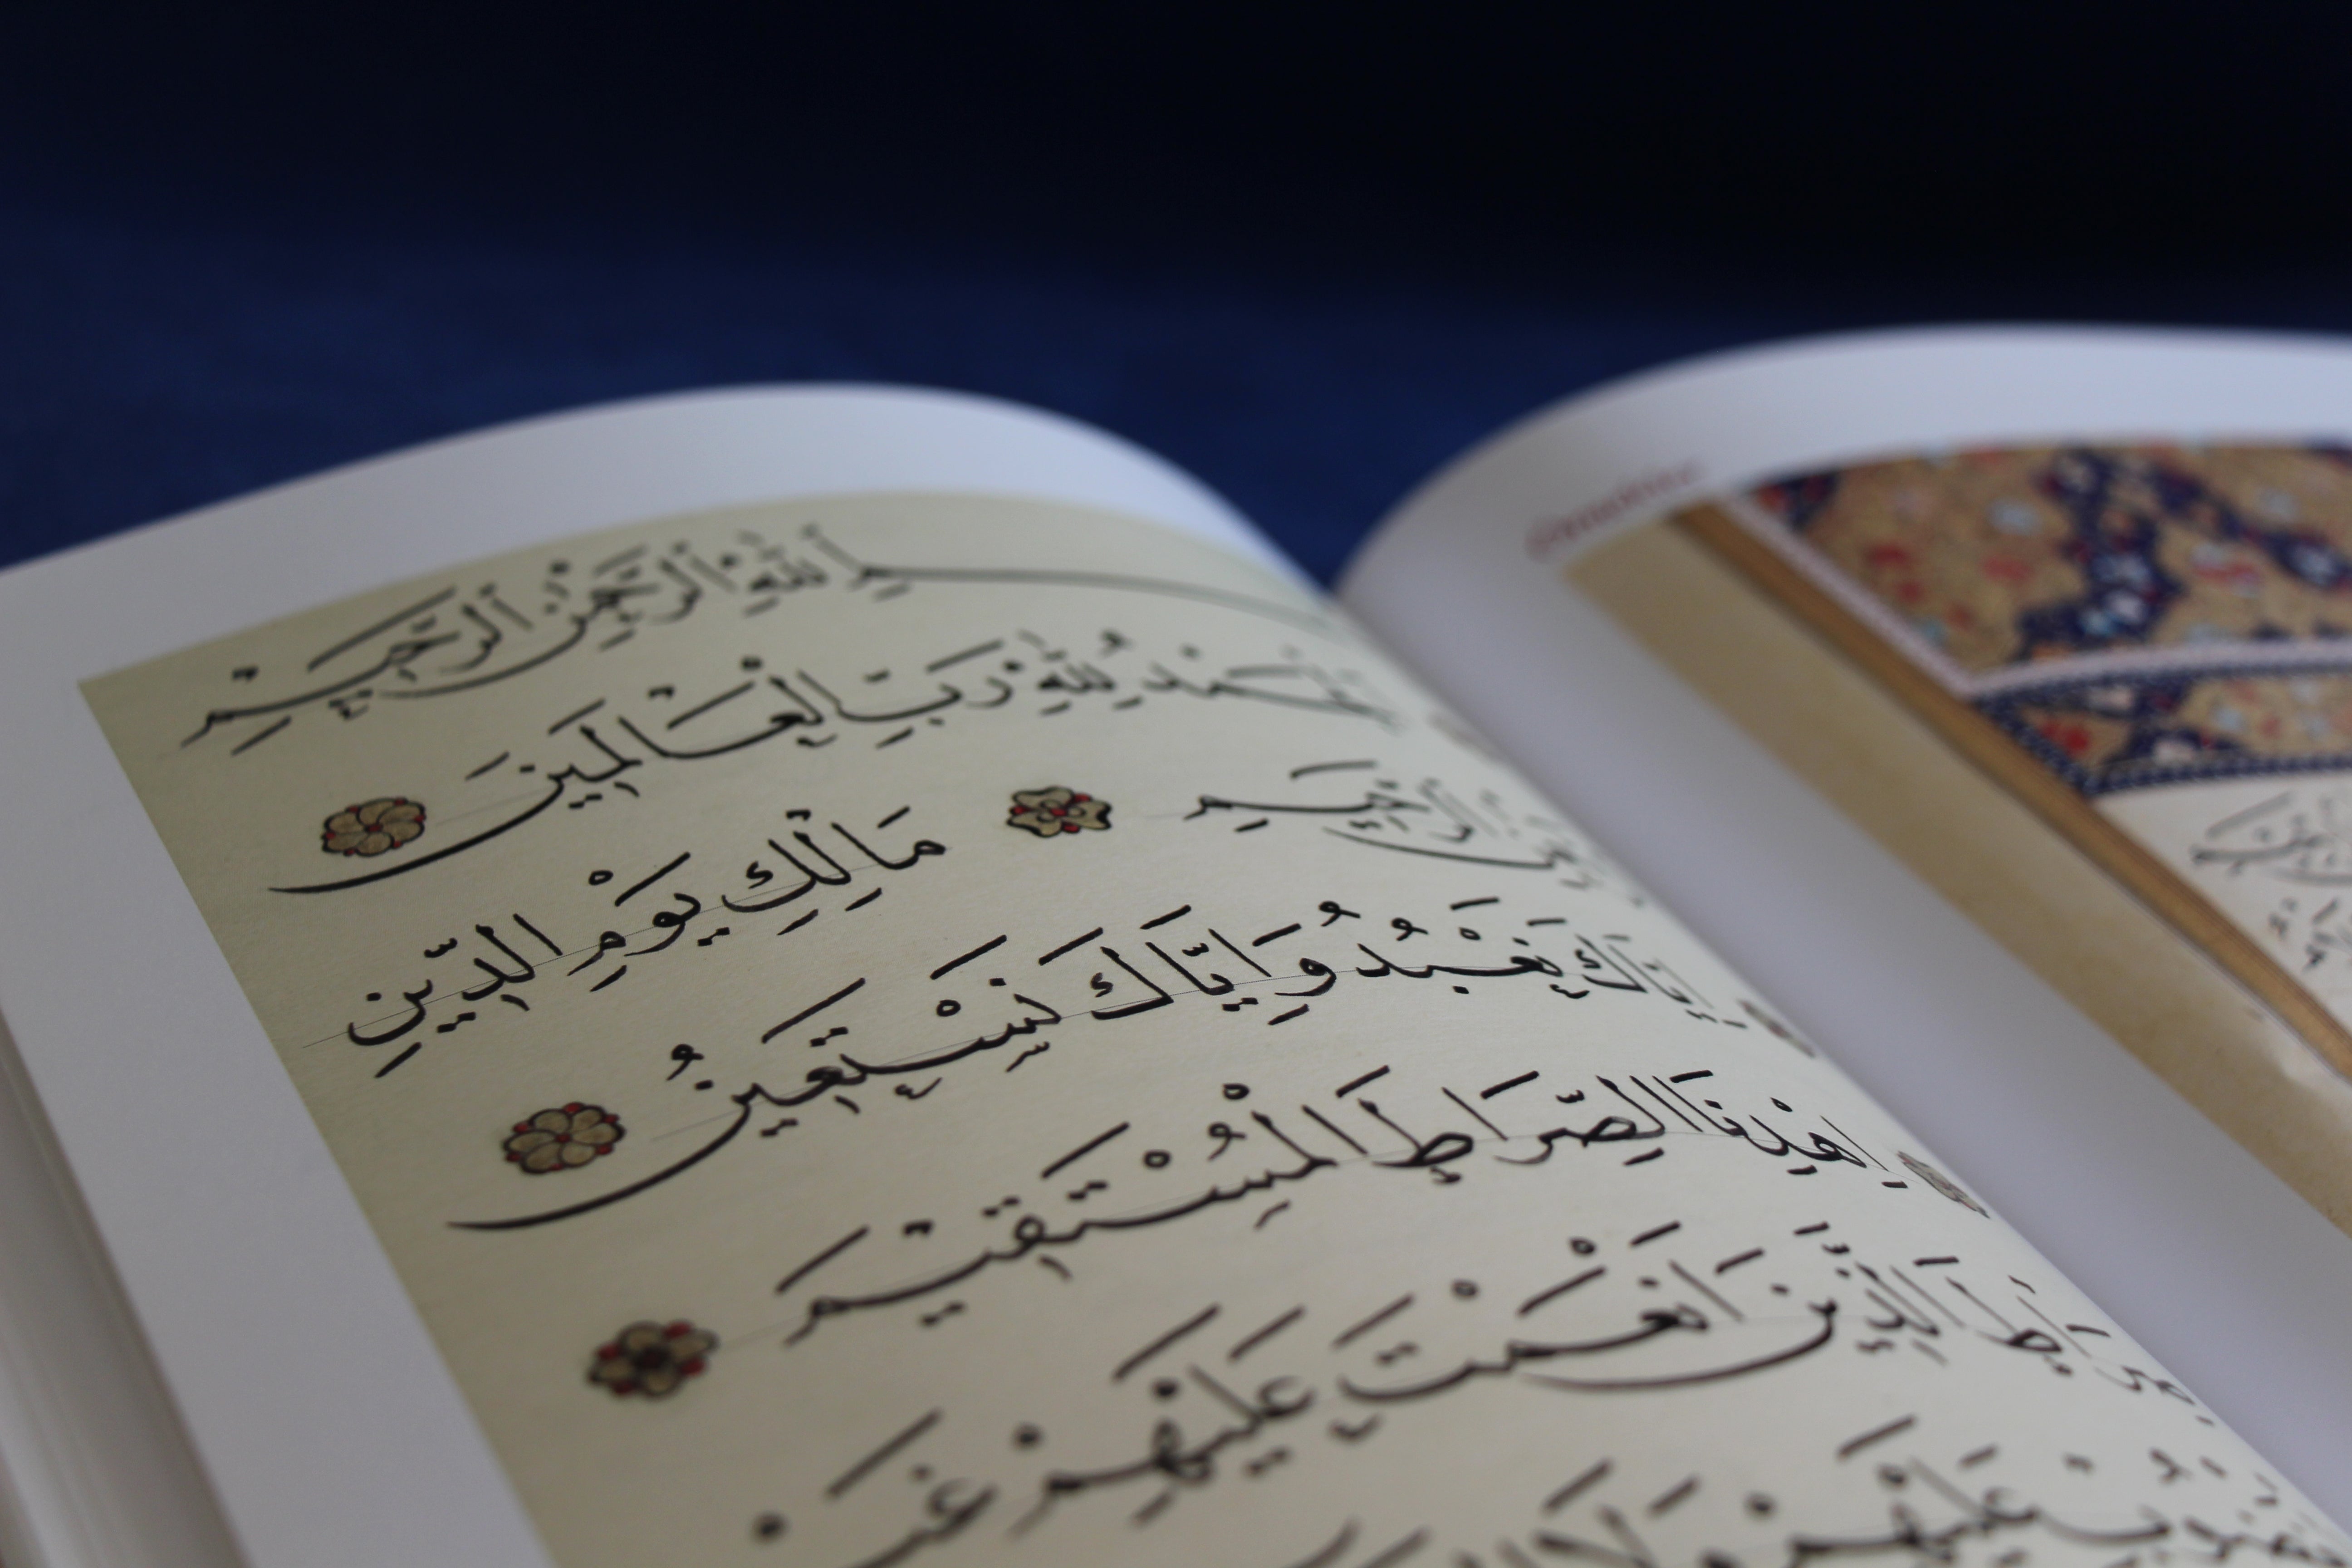 بِسْمِ اللّٰهِ الرَّحْمٰنِ الرَّحِيْمِ
اَلْحَمْدُ لِلّٰهِ رَبِّ الْعَالَمِينَ
الرَّحِيْمِ مَالِكِ يَوْمِ الدِّينِ
اِيَّاكَ نَعْبُدُ وَاِيَّاكَ نَسْتَعِينُ
اِهْدِنَا الصِّرَاطَ الْمُسْتَقِيْمَ
صِرَاطَ الَّذِينَ اَنْعَمْتَ عَلَيْهِمْ غَيْرِ
عَلَيْهِمْ وَلَا